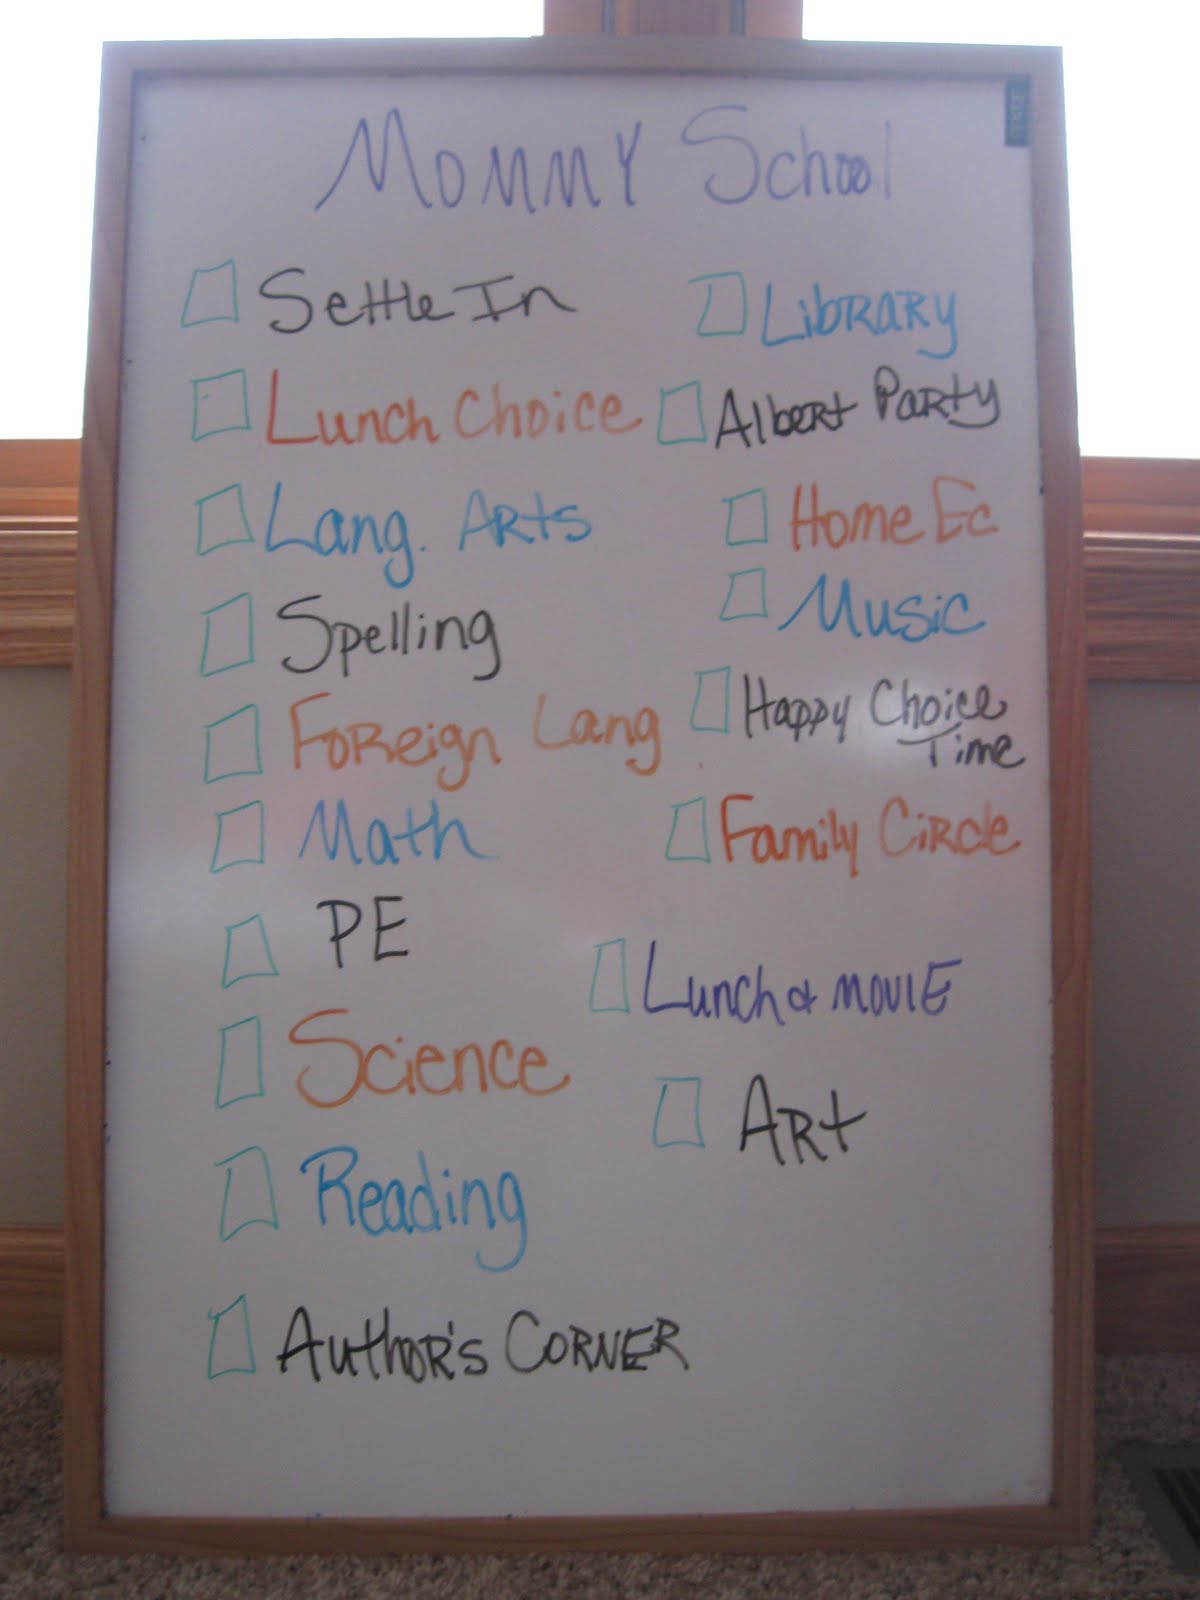 Mommy School
Settle In
Lunch Choice
Lang. Arts
Spelling
Foreign Lang
Math
PE
Science
Reading
Author's Corner
Library
Albert Party
Home Ec
Music
Happy Choice
Time
Family Circle
Lunch & Movie
Art